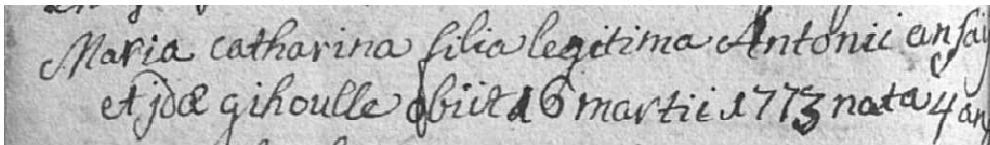 Maria catharina filia legitima Antonii ansay
et jdæ gihoulle obiit 16 martii 1773 nata 4 an